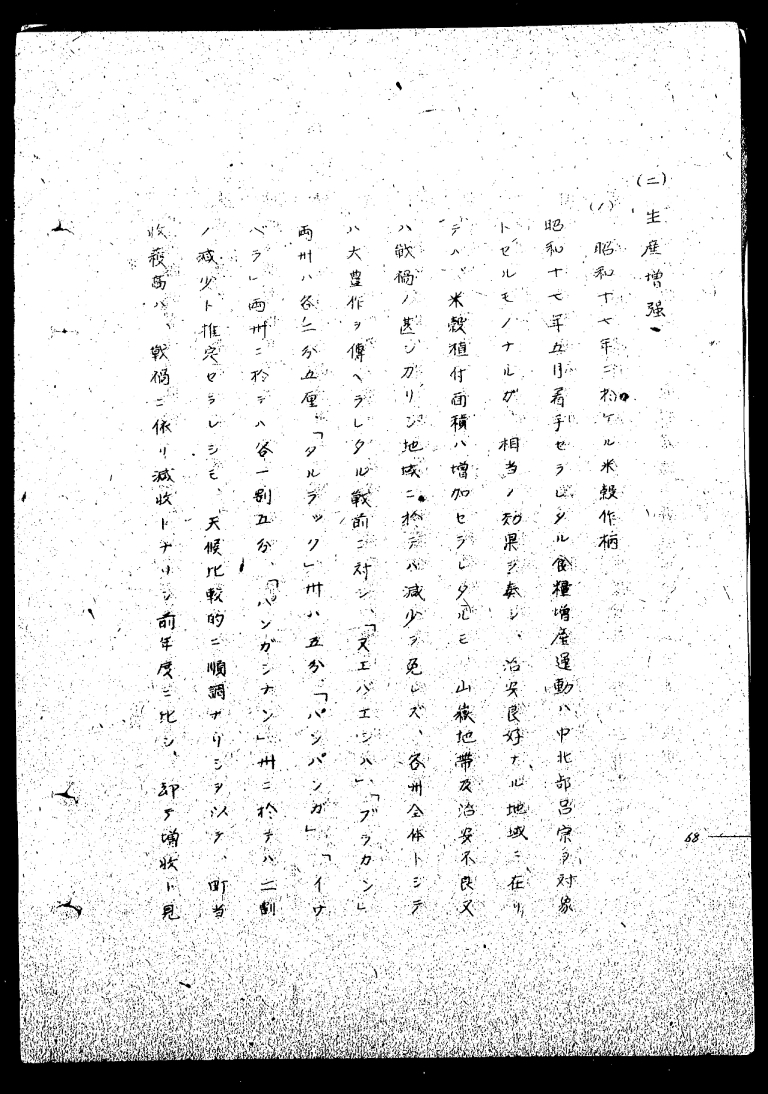 (二) 生産増强
(1) 昭和十七年ニ於ケル米穀作柄
昭和十七年五月着手セラレタル食糧増産運動ハ中北部呂宋ヲ対象
トセルモノナルガ、相当ノ効果ヲ奏シ、治安良好ナル地域ニ在リ
テハ、米穀植付面積ハ増加セラレタルモ、山嶽地帯及治安不良又
ハ戦禍ノ甚シカリシ地域ニ於テハ減少ヲ免レズ、各州全体トシテ
ハ大豊作ヲ傳ヘラレタル戦前ニ対シ、「ヌエバエシハ」、「ブラカン」
両州ハ各二分五厘、「タルラック」州ハ五分、「パンパンガ」、「イサ
ベラ」両州ニ於テハ各一割五分、「パンガシナン」州ニ於テハ二割
ノ減少ト推定セラレシモ、天候比較的ニ順調ナリシヲ以テ、町当
收穫高ハ、戦禍ニ依リ減收トナリシ前年度ニ比シ、却テ増收ト見
68